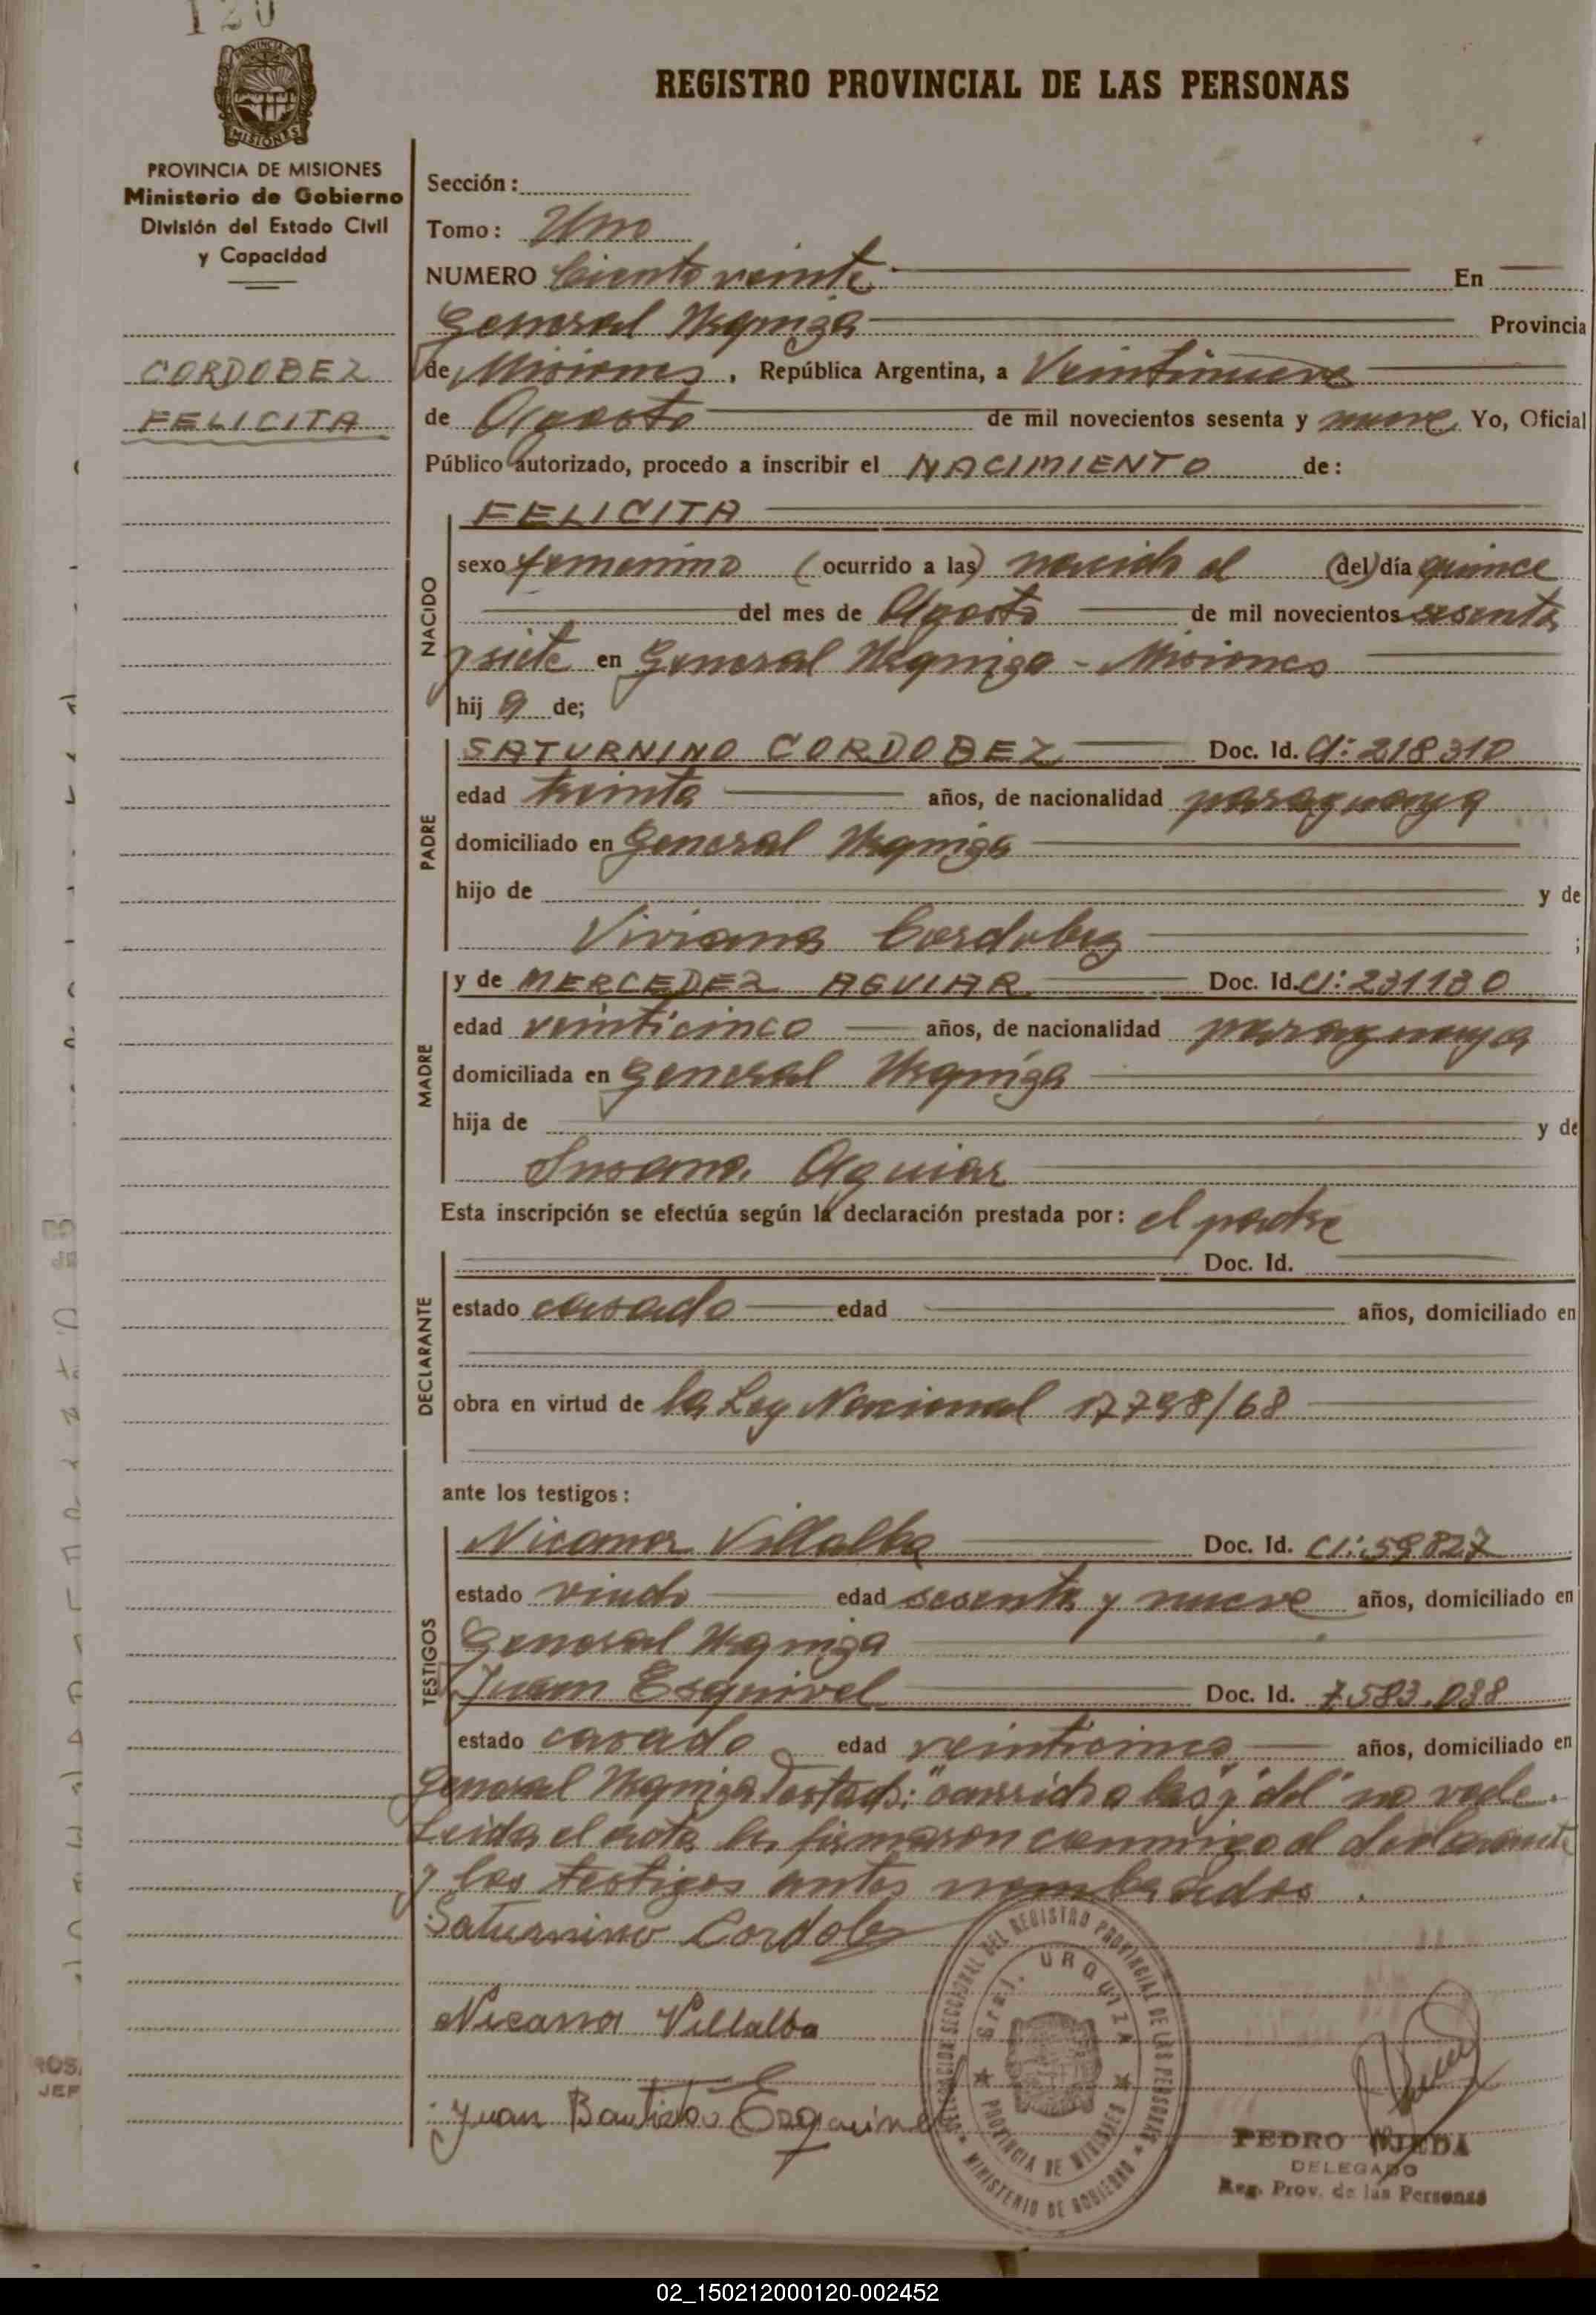 120
PROVINCIA DE
MISIONES
REGISTRO PROVINCIAL DE LAS PERSONAS
PROVINCIA DE MISIONES
Ministerio de Gobierno
División del Estado Civil
y Capacidad
CORDOBEZ
FELICITA
Sección:
Tomo: Uno
NUMERO Ciento veinte En
General Urquiza Provincia
de Misiones, República Argentina, a Veintinueve
de Agosto de mil novecientos sesenta y nueve Yo, Oficial
Público autorizado, procedo a inscribir el NACIMIENTO de:
NACIDO
FELICITA
sexo femenino (ocurrido a las) nacida el (del) día quince
del mes de Agosto de mil novecientos sesenta
y siete en General Urquiza - Misiones
hij a de;
PADRE
SATURNINO CORDOBEZ Doc. Id. CI: 218310
edad treinta años, de nacionalidad paraguaya
domiciliado en General Urquiza
hijo de y de
Viviana Cordobez ;
MADRE
y de MERCEDEZ AGUIAR Doc. Id. CI: 231130
edad veinticinco años, de nacionalidad paraguaya
domiciliada en General Urquiza
hija de y de
Susana Aguiar
Esta inscripción se efectúa según la declaración prestada por: el padre
DECLARANTE
Doc. Id.
estado casado edad años, domiciliado en
obra en virtud de la Ley Nacional 17798/68
ante los testigos:
TESTIGOS
Nicanor Villalba Doc. Id. CI: 59827
estado viudo edad sesenta y nueve años, domiciliado en
General Urquiza
Juan Esquivel Doc. Id. 7.583.038
estado casado edad veinticinco años, domiciliado en
General Urquiza Testado: "ocurrido a las" y "del" no vale.
Leida el acta la firmaron conmigo el declarante
y los testigos antes nombrados.
Saturnino Cordobe
Nicanor Villalba
Juan Bautista Esquivel
DELEGACION SECCIONAL DEL REGISTRO PROVINCIAL DE LAS PERSONAS
Gral. URQUIZA
PROVINCIA DE MISIONES
MINISTERIO DE GOBIERNO
PEDRO OJEDA
DELEGADO
Reg. Prov. de las Personas
ROS
JEF
02_150212000120-002452